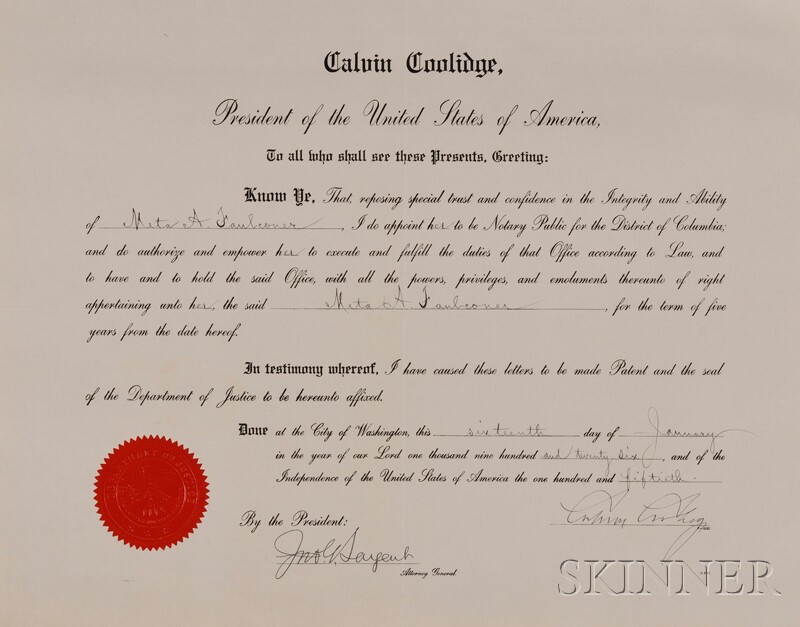 Calvin Coolidge,
President of the United States of America,
To all who shall see these Presents, Greeting:
Know Ye, That, reposing special trust and confidence in the Integrity and Ability
of Meta A. Faulconer, I do appoint her to be Notary Public for the District of Columbia;
and do authorize and empower her to execute and fulfill the duties of that Office according to Law, and
to have and to hold the said Office, with all the powers, privileges, and emoluments thereunto of right
appertaining unto her, the said Meta A. Faulconer, for the term of five
years from the date hereof.
In testimony whereof, I have caused these letters to be made Patent and the seal
of the Department of Justice to be hereunto affixed.
Done at the City of Washington, this sixteenth day of January
in the year of our Lord one thousand nine hundred and twenty six, and of the
Independence of the United States of America the one hundred and fiftieth.
By the President:
Calvin Coolidge
Jno G Sargent
Attorney General.
SKINNER